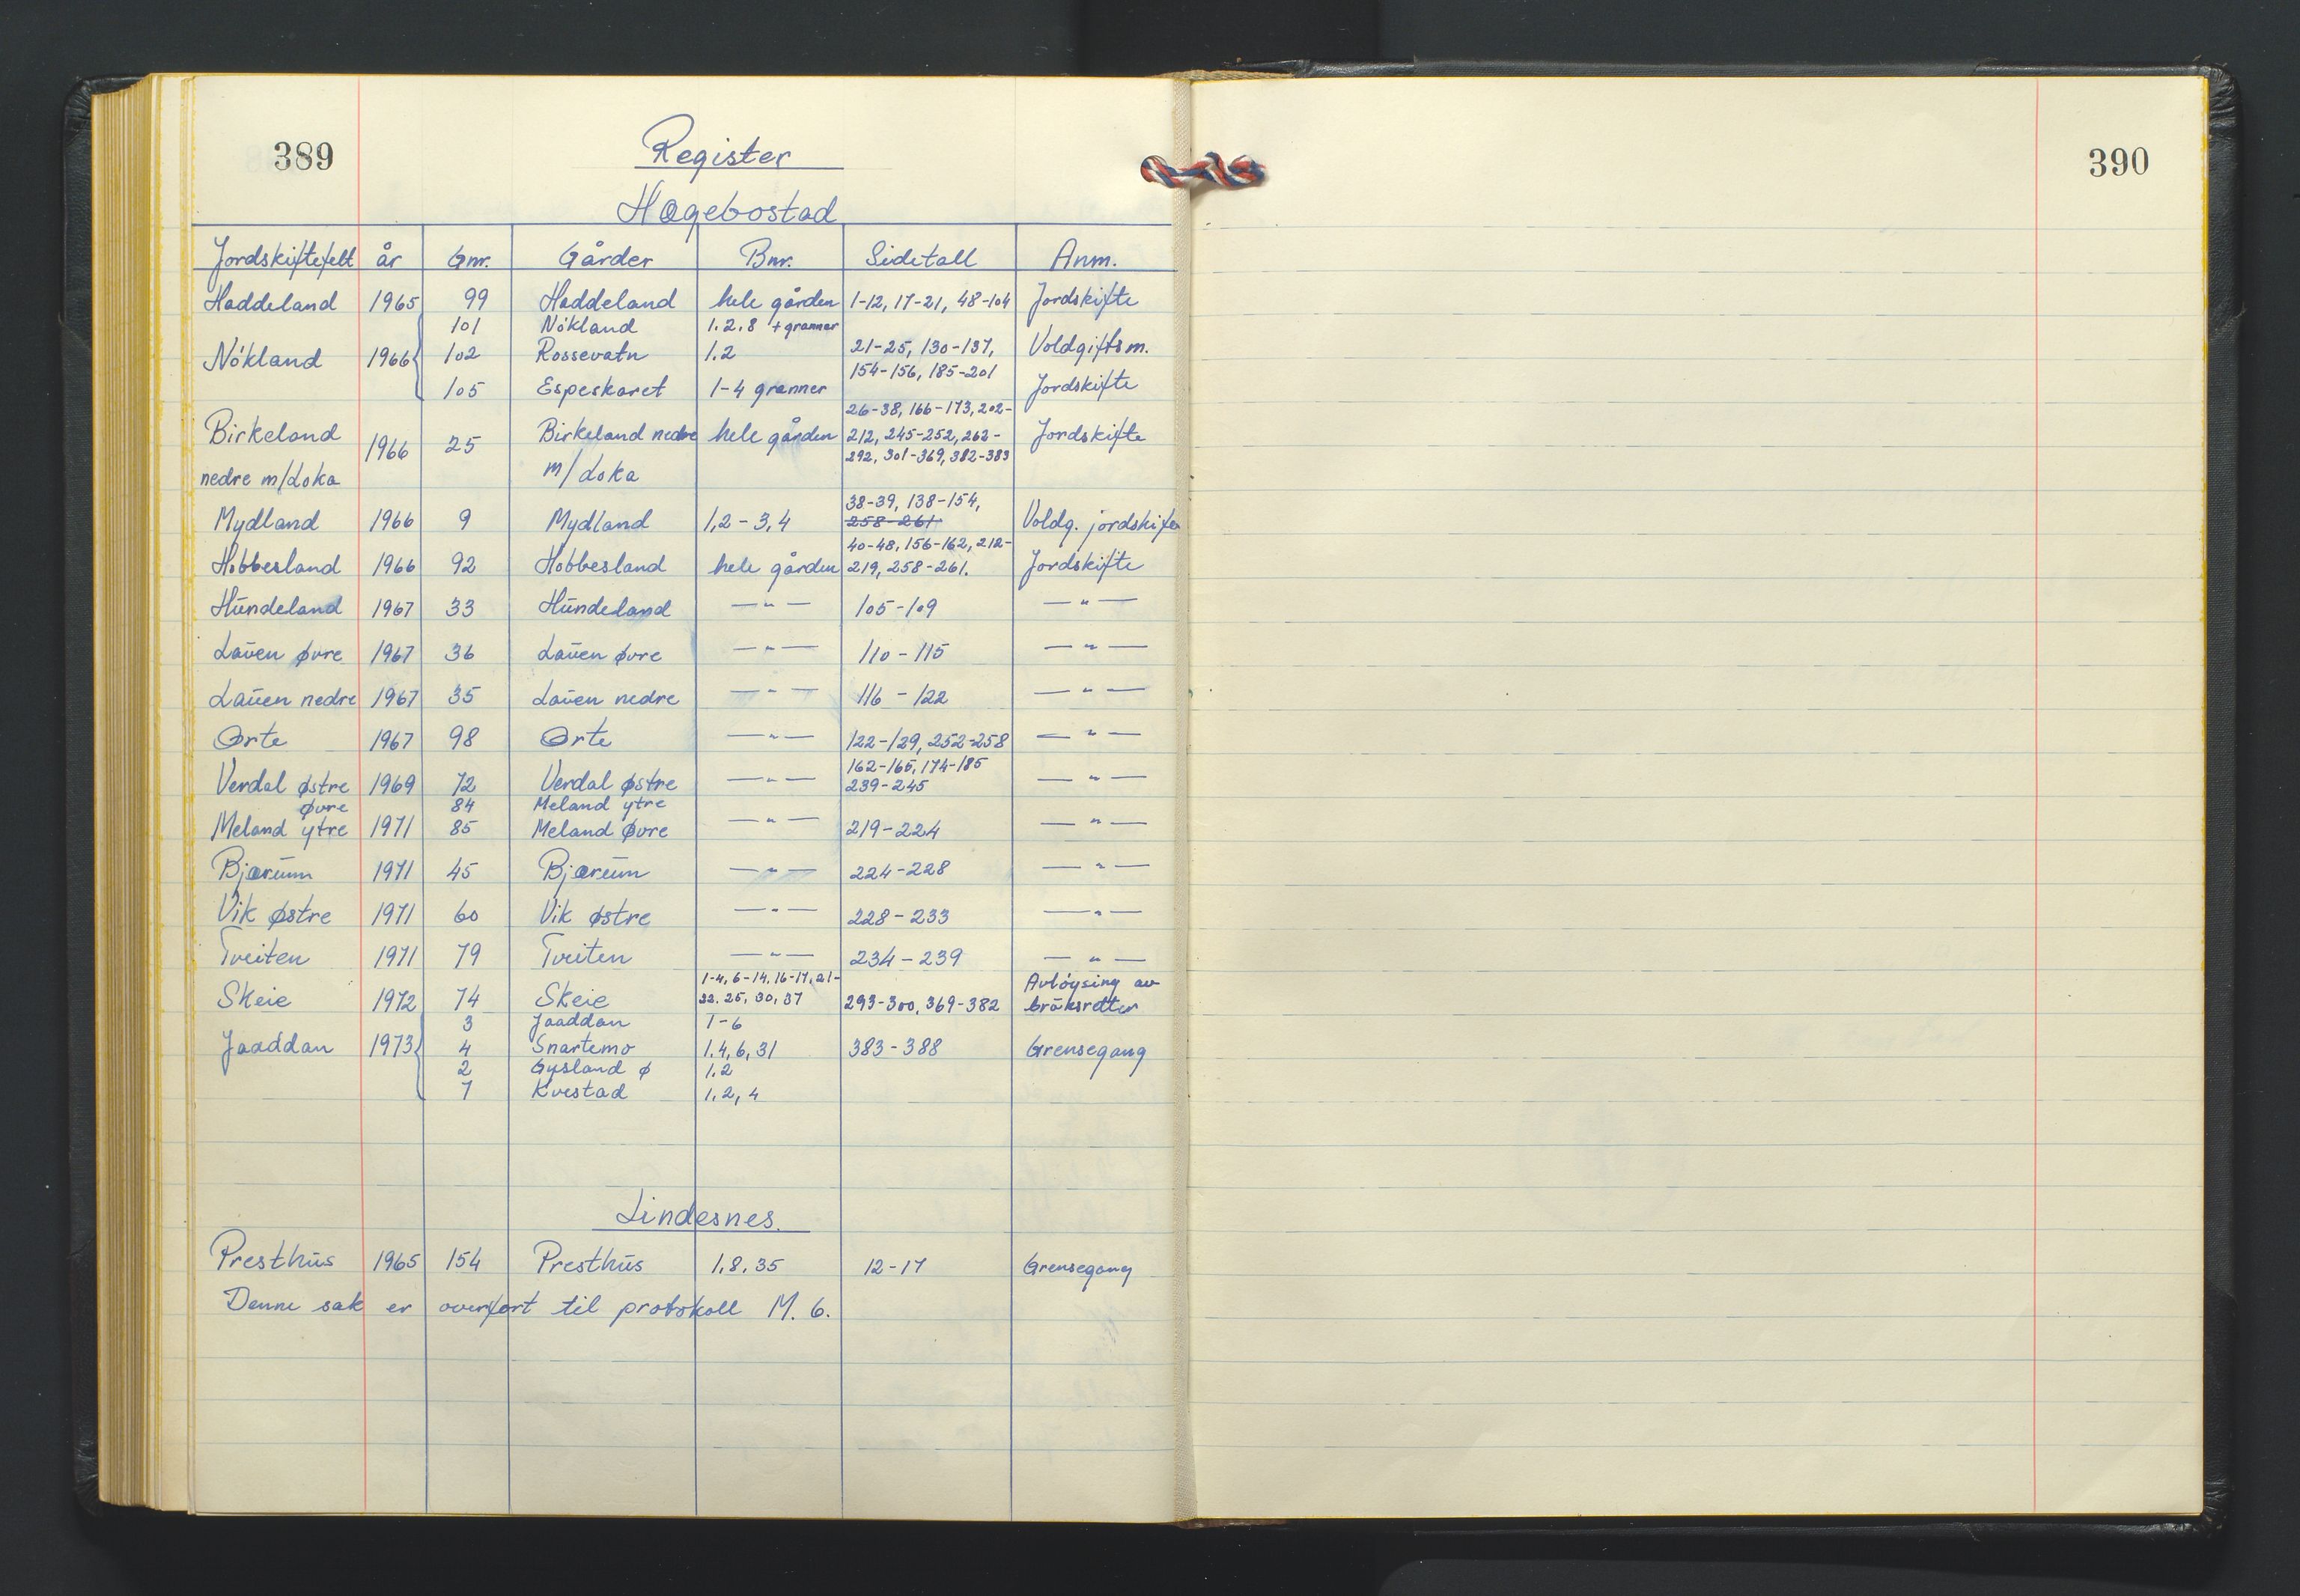 389
Register
Hægebostad
Jordskiftefelt år Gnr. Gårder Bnr. Sidetall Anm.
Haddeland 1965 99 Haddeland hele gården 1-12, 17-21, 48-104 Jordskifte
101 Nökland 1.2.8 + granner
Nökland 1966 102 Rossevatn 1.2 21-25, 130-137, Voldgiftsm.
154-156, 185-201
105 Espeskaret 1-4 granner Jordskifte
26-38, 166-173, 202-
Birkeland 1966 25 Birkeland nedre hele gården 212, 245-252, 262- Jordskifte
292, 301-369, 382-383
nedre m/Loka m/Loka
38-39, 138-154,
Mydland 1966 9 Mydland 1,2-3,4 258-261 Voldg. jordskifte
40-48, 156-162, 212-
Hobbesland 1966 92 Hobbesland hele gården 219, 258-261. Jordskifte
Hundeland 1967 33 Hundeland —"— 105-109 —"—
Lauen øvre 1967 36 Lauen øvre —"— 110-115 —"—
Lauen nedre 1967 35 Lauen nedre —"— 116-122 —"—
Ørte 1967 98 Ørte —"— 122-129, 252-258 —"—
162-165, 174-185
Verdal østre 1969 72 Verdal østre —"— 239-245 —"—
øvre 84 Meland ytre
Meland ytre 1971 85 Meland øvre —"— 219-224 —"—
Bjærum 1971 45 Bjærum —"— 224-228 —"—
Vik østre 1971 60 Vik østre —"— 228-233 —"—
Tveiten 1971 79 Tveiten —"— 234-239 —"—
1-4, 6-14, 16-17, 21- Avløysing av
Skeie 1972 74 Skeie 22. 25, 30, 37 293-300, 369-382 bruksretter
3 Jaaddan 1-6
Jaaddan 1973 4 Snartemo 1.4, 6, 31 383-388 Grensegang
2 Gysland ø 1.2
7 Kvestad 1.2, 4
Lindesnes.
Presthus 1965 154 Presthus 1.8.35 12-17 Grensegang
Denne sak er overført til protokoll M. 6.
390